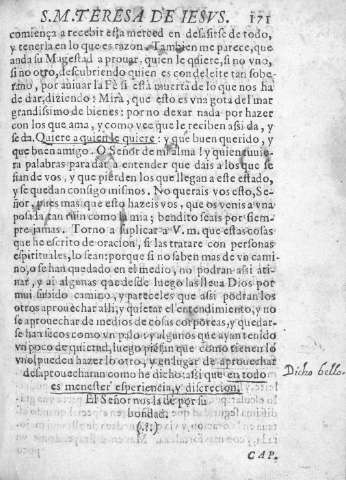 S. M. TERESA DE IESVS. 171
comiença a recebir esta merced en desasirse de todo,
y tenerla en lo que es razon. Tambien me parece, que
anda su Magestad a prouar, quien le quiere, si no vno,
si no otro, descubriendo quien es con deleite tan sobe-
rano, por auiuar la Fè si està muerta de lo que nos ha
de dar, diziendo: Mirà, que esto es vna gota del mar
grandissimo de bienes: por no dexar nada por hazer
con los que ama, y como vee que le reciben assi da, y
se da. Quiere a quien le quiere: y que buen querido, y
que buen amigo. O Señor de mi alma! y quien tuuie-
ra palabras para dar à entender que dais a los que se
fian de vos, y que pierden los que llegan a este estado,
y se quedan consigo mismos. No querais vos esto, Se-
ñor, pues mas que esto hazeis vos, que os venis a vna
posada tan ruin como la mia; bendito seais por siem-
pre jamas. Torno a suplicar a V. m. que estas cosas
que he escrito de oracion, si las tratare con personas
espirituales, lo sean: porque si no saben mas de vn cami
no, o se han quedado en el medio, no podran assi ati-
nar, y ai algunas que desde luego las lleua Dios por
mui subido camino, y pareceles que assi podran los
otros aprouechar alli, y quietar el entendimiento, y no
se aprouechar de medios de cosas corporeas, y quedar-
se han secos como vn palo: y algunos que ayan tenido
vn poco de quietud, luego piensan que como tienen lo
vno, pueden hazer lo otro, y en lugar de aprouechar
desaprouecharan como he dicho: assi que en todo
es menester esperiencia, y discrecion.
El Señor nos la dè por su
bondad.
(.?.)
Dicho bello.
CAP.